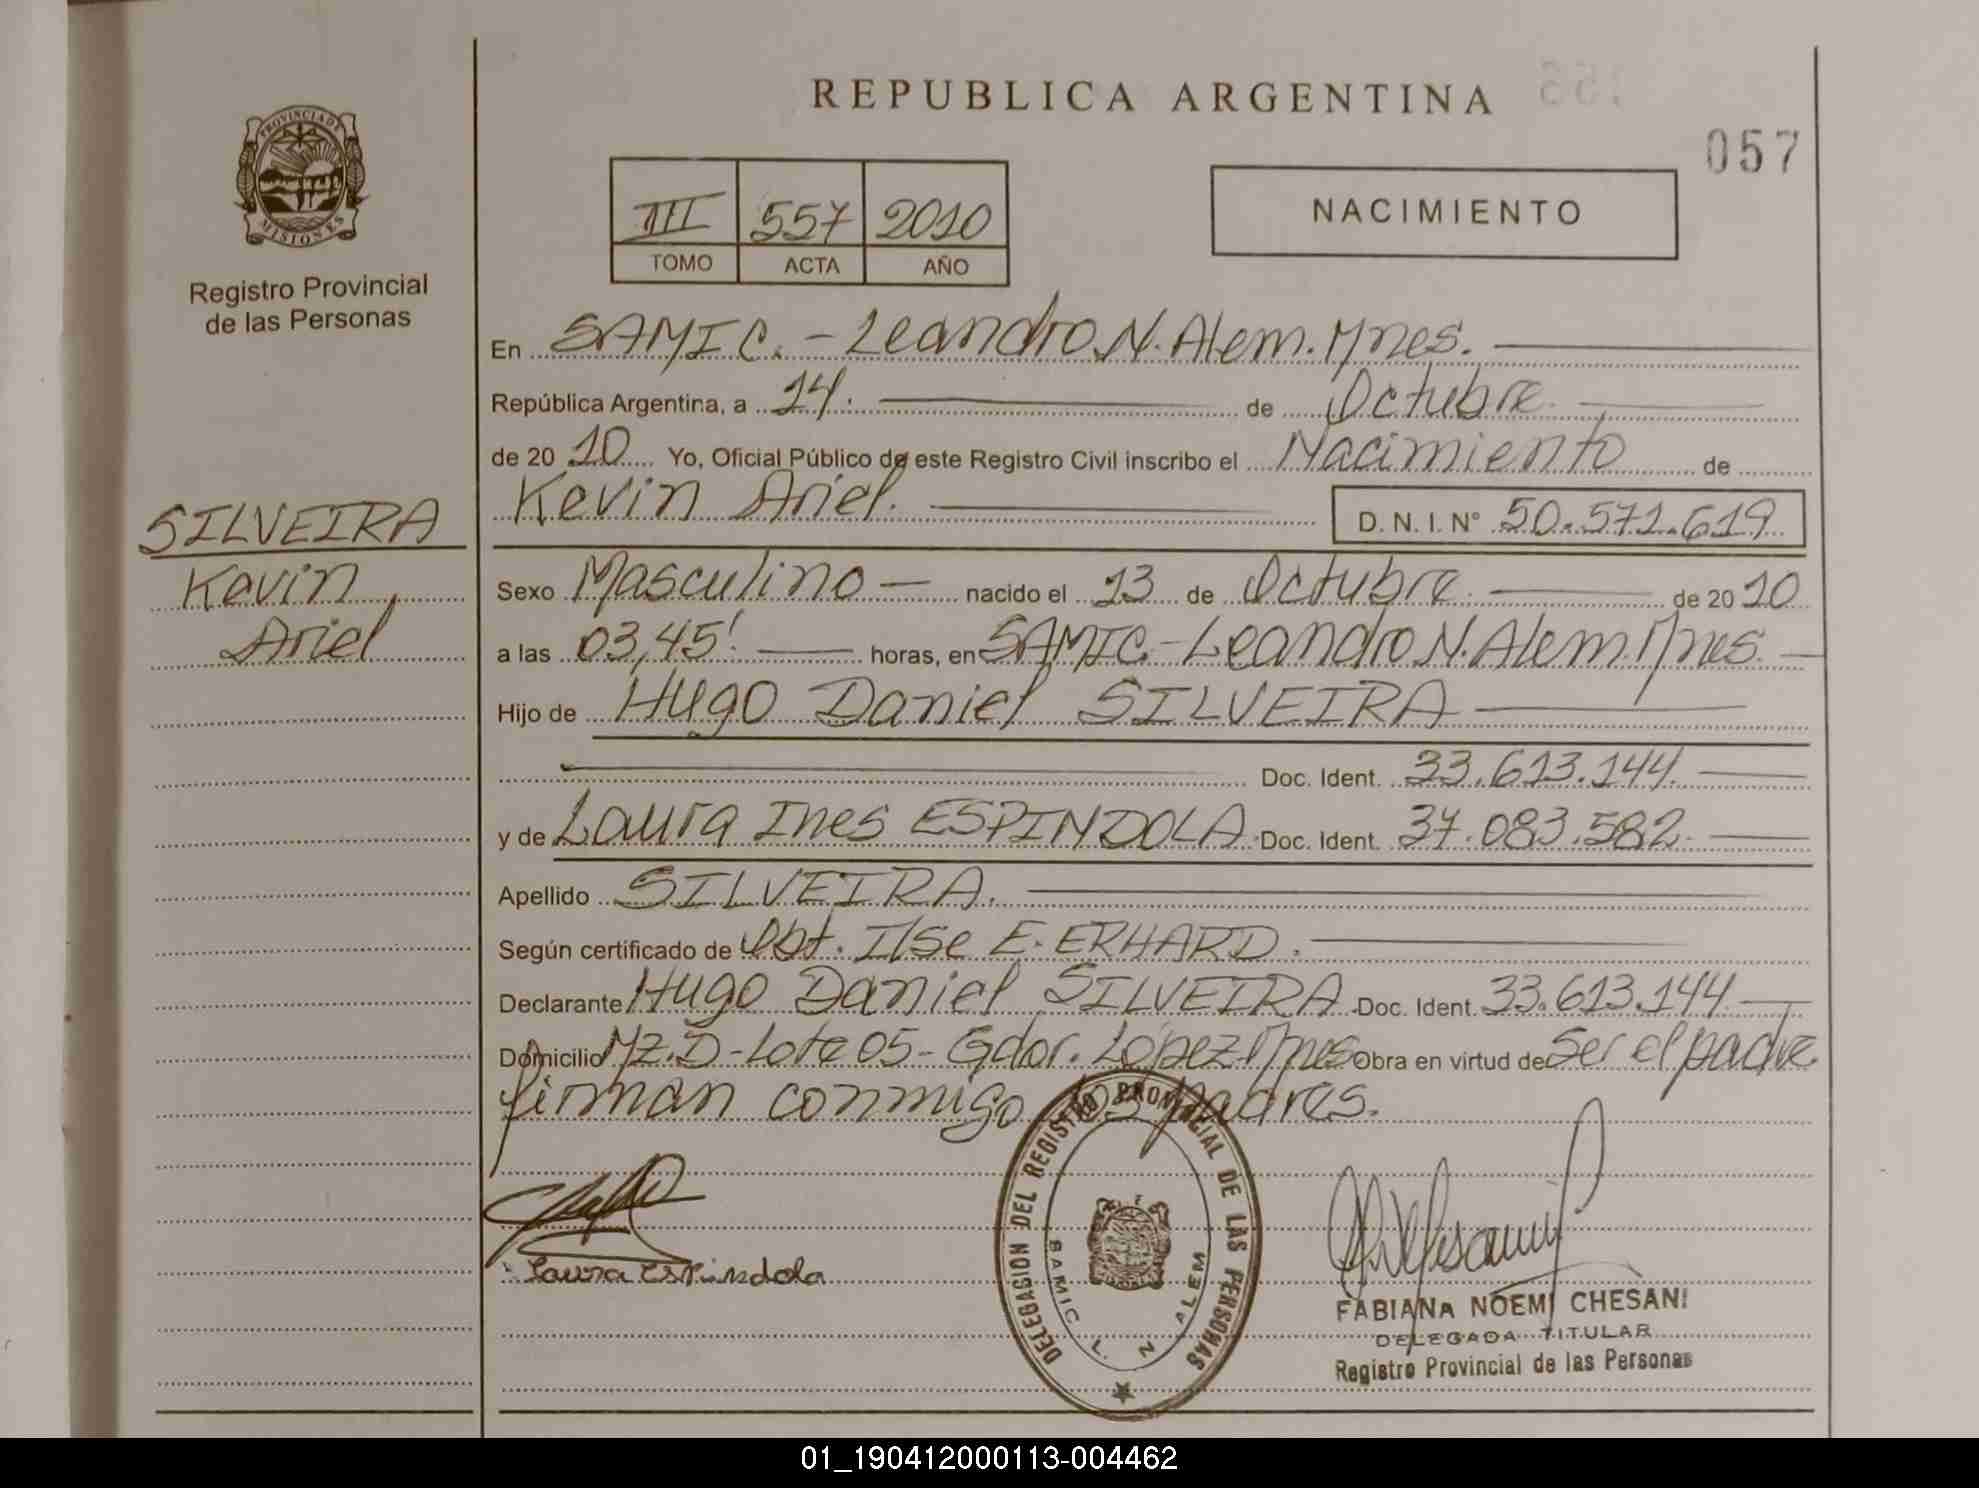 REPUBLICA ARGENTINA
057
PROVINCIA DE
MISIONES
Registro Provincial
de las Personas
III 557 2010
TOMO ACTA AÑO
NACIMIENTO
En SAMIC. - Leandro N. Alem. Mnes.
República Argentina, a 14. de Octubre
de 20 10 Yo, Oficial Público de este Registro Civil inscribo el Nacimiento de
Kevin Ariel. D. N. I. Nº 50.571.619
SILVEIRA
Kevin
Ariel
Sexo Masculino nacido el 13 de Octubre de 20 10
a las 03,45' horas, en SAMIC.- Leandro N. Alem. Mnes.
Hijo de Hugo Daniel SILVEIRA
Doc. Ident. 33.613.144
y de Laura Ines ESPINDOLA Doc. Ident. 37.083.582
Apellido SILVEIRA.
Según certificado de Obt. Ilse E. ERHARD.
Declarante Hugo Daniel SILVEIRA Doc. Ident. 33.613.144
Domicilio Mz. D - Lote 05 - Gdor. López Mnes Obra en virtud de Ser el padre
firman conmigo los padres.
Laura Espindola
DELEGACION DEL REGISTRO PROVINCIAL DE LAS PERSONAS
SAMIC L. N. ALEM
FABIANA NOEMI CHESANI
DELEGADA TITULAR
Registro Provincial de las Personas
01_190412000113-004462